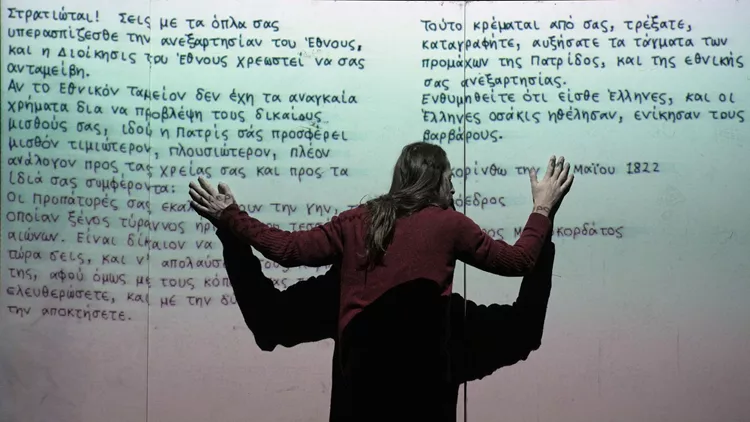 Στρατιώται! Σεις με τα όπλα σας
υπερασπίζεσθε την ανεξαρτησίαν του Έθνους,
και η Διοίκησις του Έθνους χρεωστεί να σας
ανταμείβη.
Αν το Εθνικόν Ταμείον δεν έχη τα αναγκαία
χρήματα δια να προβλέψη τους δικαίους
μισθούς σας, ιδού η Πατρίς σάς προσφέρει
μισθόν τιμιώτερον, πλουσιώτερον, πλέον
ανάλογον προς τας χρείας σας και προς τα
ίδιά σας συμφέροντα:
Οι προπάτορές σας την γην, τ
οποίαν ξένος τύραννος
αιώνων. Είναι δίκαιον να
τώρα σεις, και ν' απολαύσ
της, αφού όμως με τους κόπ
ελευθερώσετε, και με την
την αποκτήσετε.
Τούτο κρέμαται από σας, τρέξατε,
καταγραφήτε, αυξήσατε τα τάγματα των
προμάχων της Πατρίδος, και της εθνικής
σας ανεξαρτησίας.
Ενθυμηθείτε ότι είσθε Έλληνες, και οι
Έλληνες οσάκις ηθέλησαν, ενίκησαν τους
βαρβάρους.
κορίνθω την Μαΐου 1822
εδρος
ος Μ κορδάτος